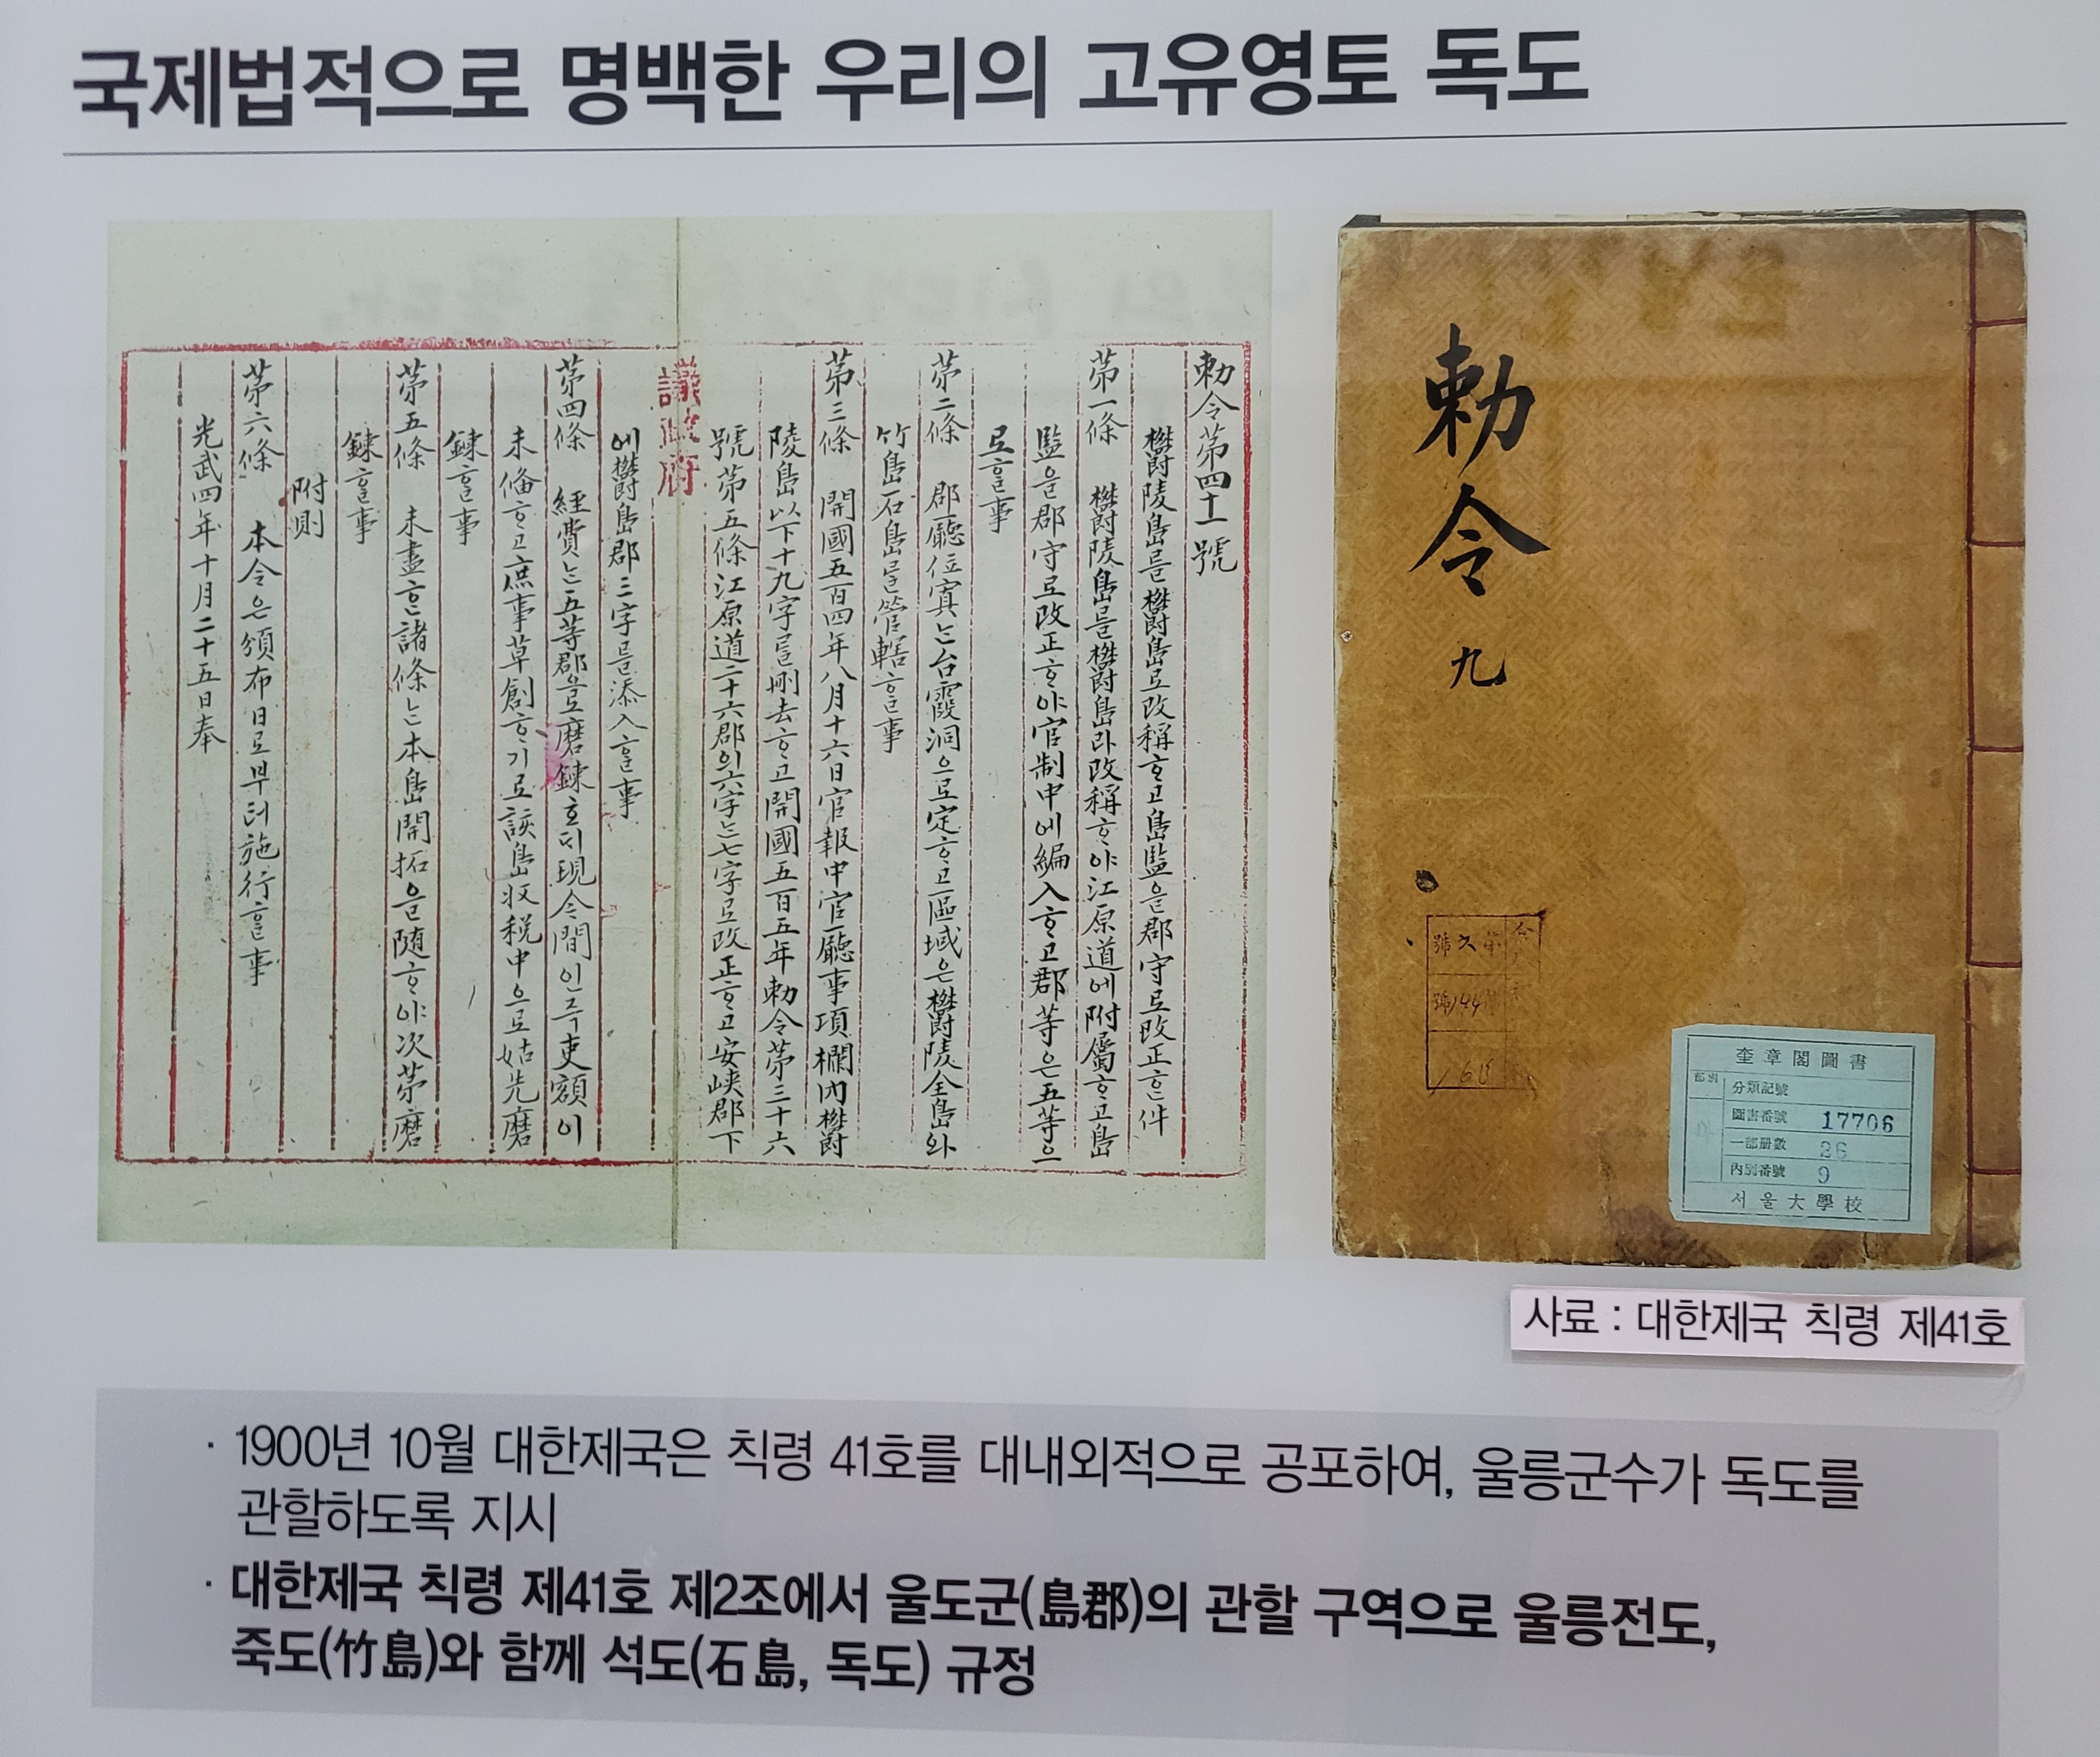 국제법적으로 명백한 우리의 고유영토 독도
勅令第四十一號
欝陵島를 欝島로 改稱ᄒᆞ고 島監을 郡守로 改正ᄒᆞᆫ 件
第一條 欝陵島를 欝島라 改稱ᄒᆞ야 江原道에 附屬ᄒᆞ고 島
監을 郡守로 改正ᄒᆞ야 官制中에 編入ᄒᆞ고 郡等은 五等으
로 ᄒᆞᆯ 事
第二條 郡廳位寘ᄂᆞᆫ 台霞洞으로 定ᄒᆞ고 區域은 欝陵全島와
竹島石島ᄅᆞᆯ 管轄ᄒᆞᆯ 事
第三條 開國五百四年八月十六日官報中官廳事項欄內欝
陵島以下十九字ᄅᆞᆯ 刪去ᄒᆞ고 開國五百五年勅令第三十六
號第五條江原道二十六郡의 六字ᄂᆞᆫ 七字로 改正ᄒᆞ고 安峽郡下
議政府
에 欝島郡三字ᄅᆞᆯ 添入ᄒᆞᆯ 事
第四條 經費ᄂᆞᆫ 五等郡으로 磨鍊호ᄃᆡ 現今間인즉 吏額이
未備ᄒᆞ고 庶事草創ᄒᆞ기로 該島收稅中으로 姑先磨
鍊ᄒᆞᆯ 事
第五條 未盡ᄒᆞᆫ 諸條ᄂᆞᆫ 本島開拓을 隨ᄒᆞ야 次第磨
鍊ᄒᆞᆯ 事
附則
第六條 本令은 頒布日로부터 施行ᄒᆞᆯ 事
光武四年十月二十五日奉
勅令 九
奎章閣圖書
部別
分類記號
圖書番號 17706
一部冊數 26
內別番號 9
서울大學校
사료 : 대한제국 칙령 제41호
· 1900년 10월 대한제국은 칙령 41호를 대내외적으로 공포하여, 울릉군수가 독도를
관할하도록 지시
· 대한제국 칙령 제41호 제2조에서 울도군(島郡)의 관할 구역으로 울릉전도,
죽도(竹島)와 함께 석도(石島, 독도) 규정